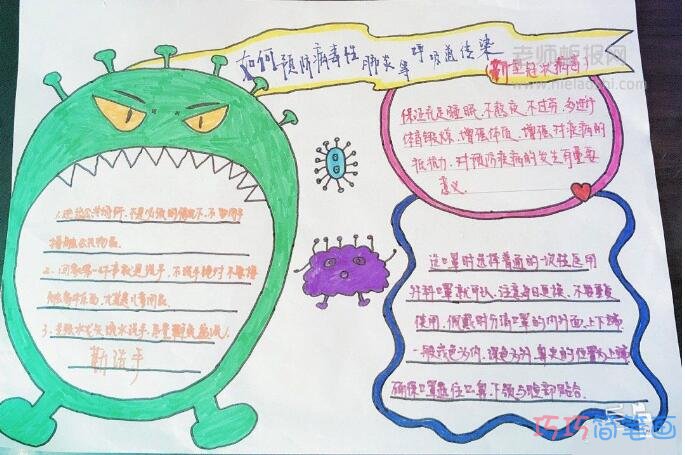 如何预防病毒性肺炎等呼吸道传染
新型冠状病毒
老师板报网
www.nielaoshi.com
保证充足睡眠,不熬夜,不过劳,多进行
体育锻炼,增强体质,增强对疾病的
抵抗力,对预防疾病的发生有重要
意义
1.进入公共场所,不是必须的情况下,不要用手
接触公共物品。
2.回家第一件事就是洗手,不洗手绝对不要接
勤洗手
选口罩时选择普通的一次性医用
外科口罩就可以,注意每日更换,不要重复
使用,佩戴时分清口罩的内外面,上下端
一般浅色为内,深色为外,鼻夹的位置为上端
确保口罩遮住口鼻,下颌与脸部贴合
巧巧简笔画